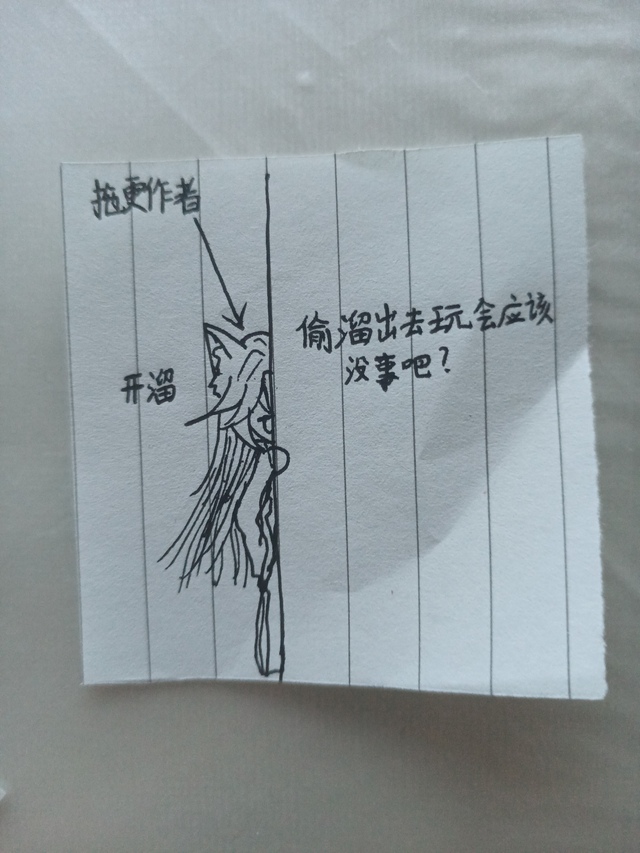 拖更作者
偷溜出去玩会应该
没事吧？
开溜